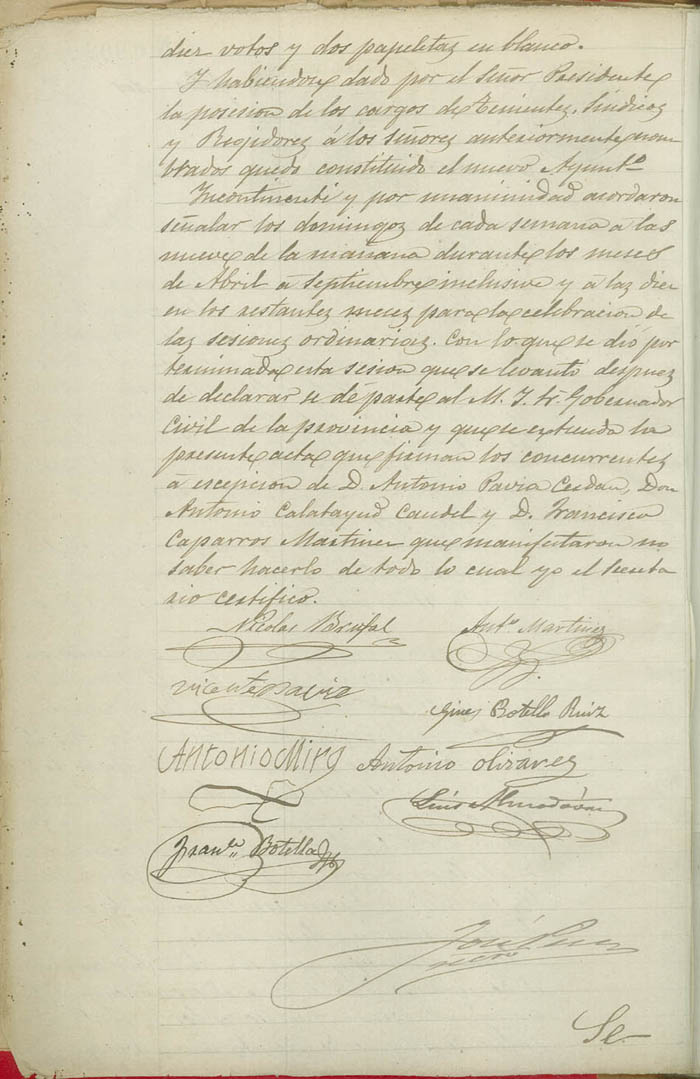 diez votos y dos papeletas en blanco.
Y habiendose dado por el Señor Presidente
la posesion de los cargos de Tenientes, Sindicos
y Regidores á los señores anteriormente nom
brados quedo constituido el nuevo Ayuntº
Incontinenti y por unanimidad acordaron
señalar los domingos de cada semana á las
nueve de la mañana durante los meses
de Abril á Septiembre inclusive y á las diez
en los restantes meses para la celebracion de
las sesiones ordinarias. Con lo que se dió por
terminada esta sesion que se levantó despues
de declarar se dé parte al M. I. Sr. Gobernador
Civil de la provincia y que se extienda la
presente acta que firman los concurrentes
á escepcion de D. Antonio Pavia Cerdan, Don
Antonio Calatayud Caudel y D. Francisco
Caparros Martinez que manifestaron no
saber hacerlo de todo lo cual yo el Secreta
rio certifico.
Nicolas Brufal Antº Martinez
Vicente Pavia
Gines Botella Ruiz
Antonio Miro Antonio Olivarez
Luis Almodóvar
Franco Botella
José
Se